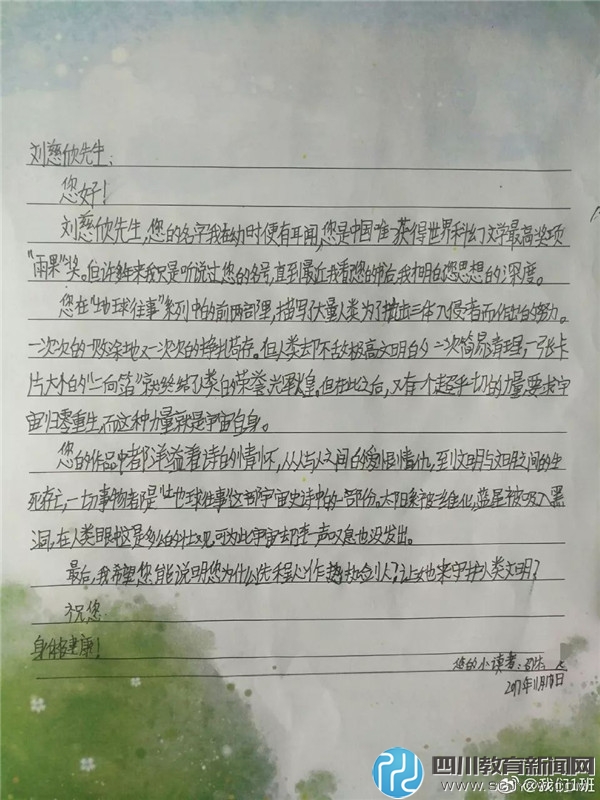 刘慈欣先生：
您好！
刘慈欣先生，您的名字我在幼时便有耳闻，您是中国唯一获得世界科幻文学最高奖项
“雨果”奖。但许多年来我只是听说过您的名号，直到最近我看您的书后，我才明白您思想的深度。
您在“地球往事”系列中的前两部里，描写了大量人类为了抗击三体入侵者而作出的努力。
一次次的一败涂地又一次次的挣扎苟存。但人类却不敌极高文明的一次简易清理，一张卡
片大小的“二向箔”就终结了人类的荣誉光辉。但在此之后，又有一个超乎一切的力量要求宇
宙归零重生，而这种力量就是宇宙自身。
您的作品中都洋溢着诗的情怀，从人与人之间的爱恨情仇，到文明与文明之间的生
死存亡，一切事物都是“地球往事”这部宇宙史诗中的一部份。太阳系被二维化，蓝星被吸入黑
洞，在人类眼中这是多么的壮观，可为此宇宙却连一声叹息也没发出。
最后，我希望您能说明您为什么先程心作为执剑人？让她来守护人类文明？
祝您
身体健康！
您的小读者：
2017年11月17日
四川教育新闻网
@我们1班